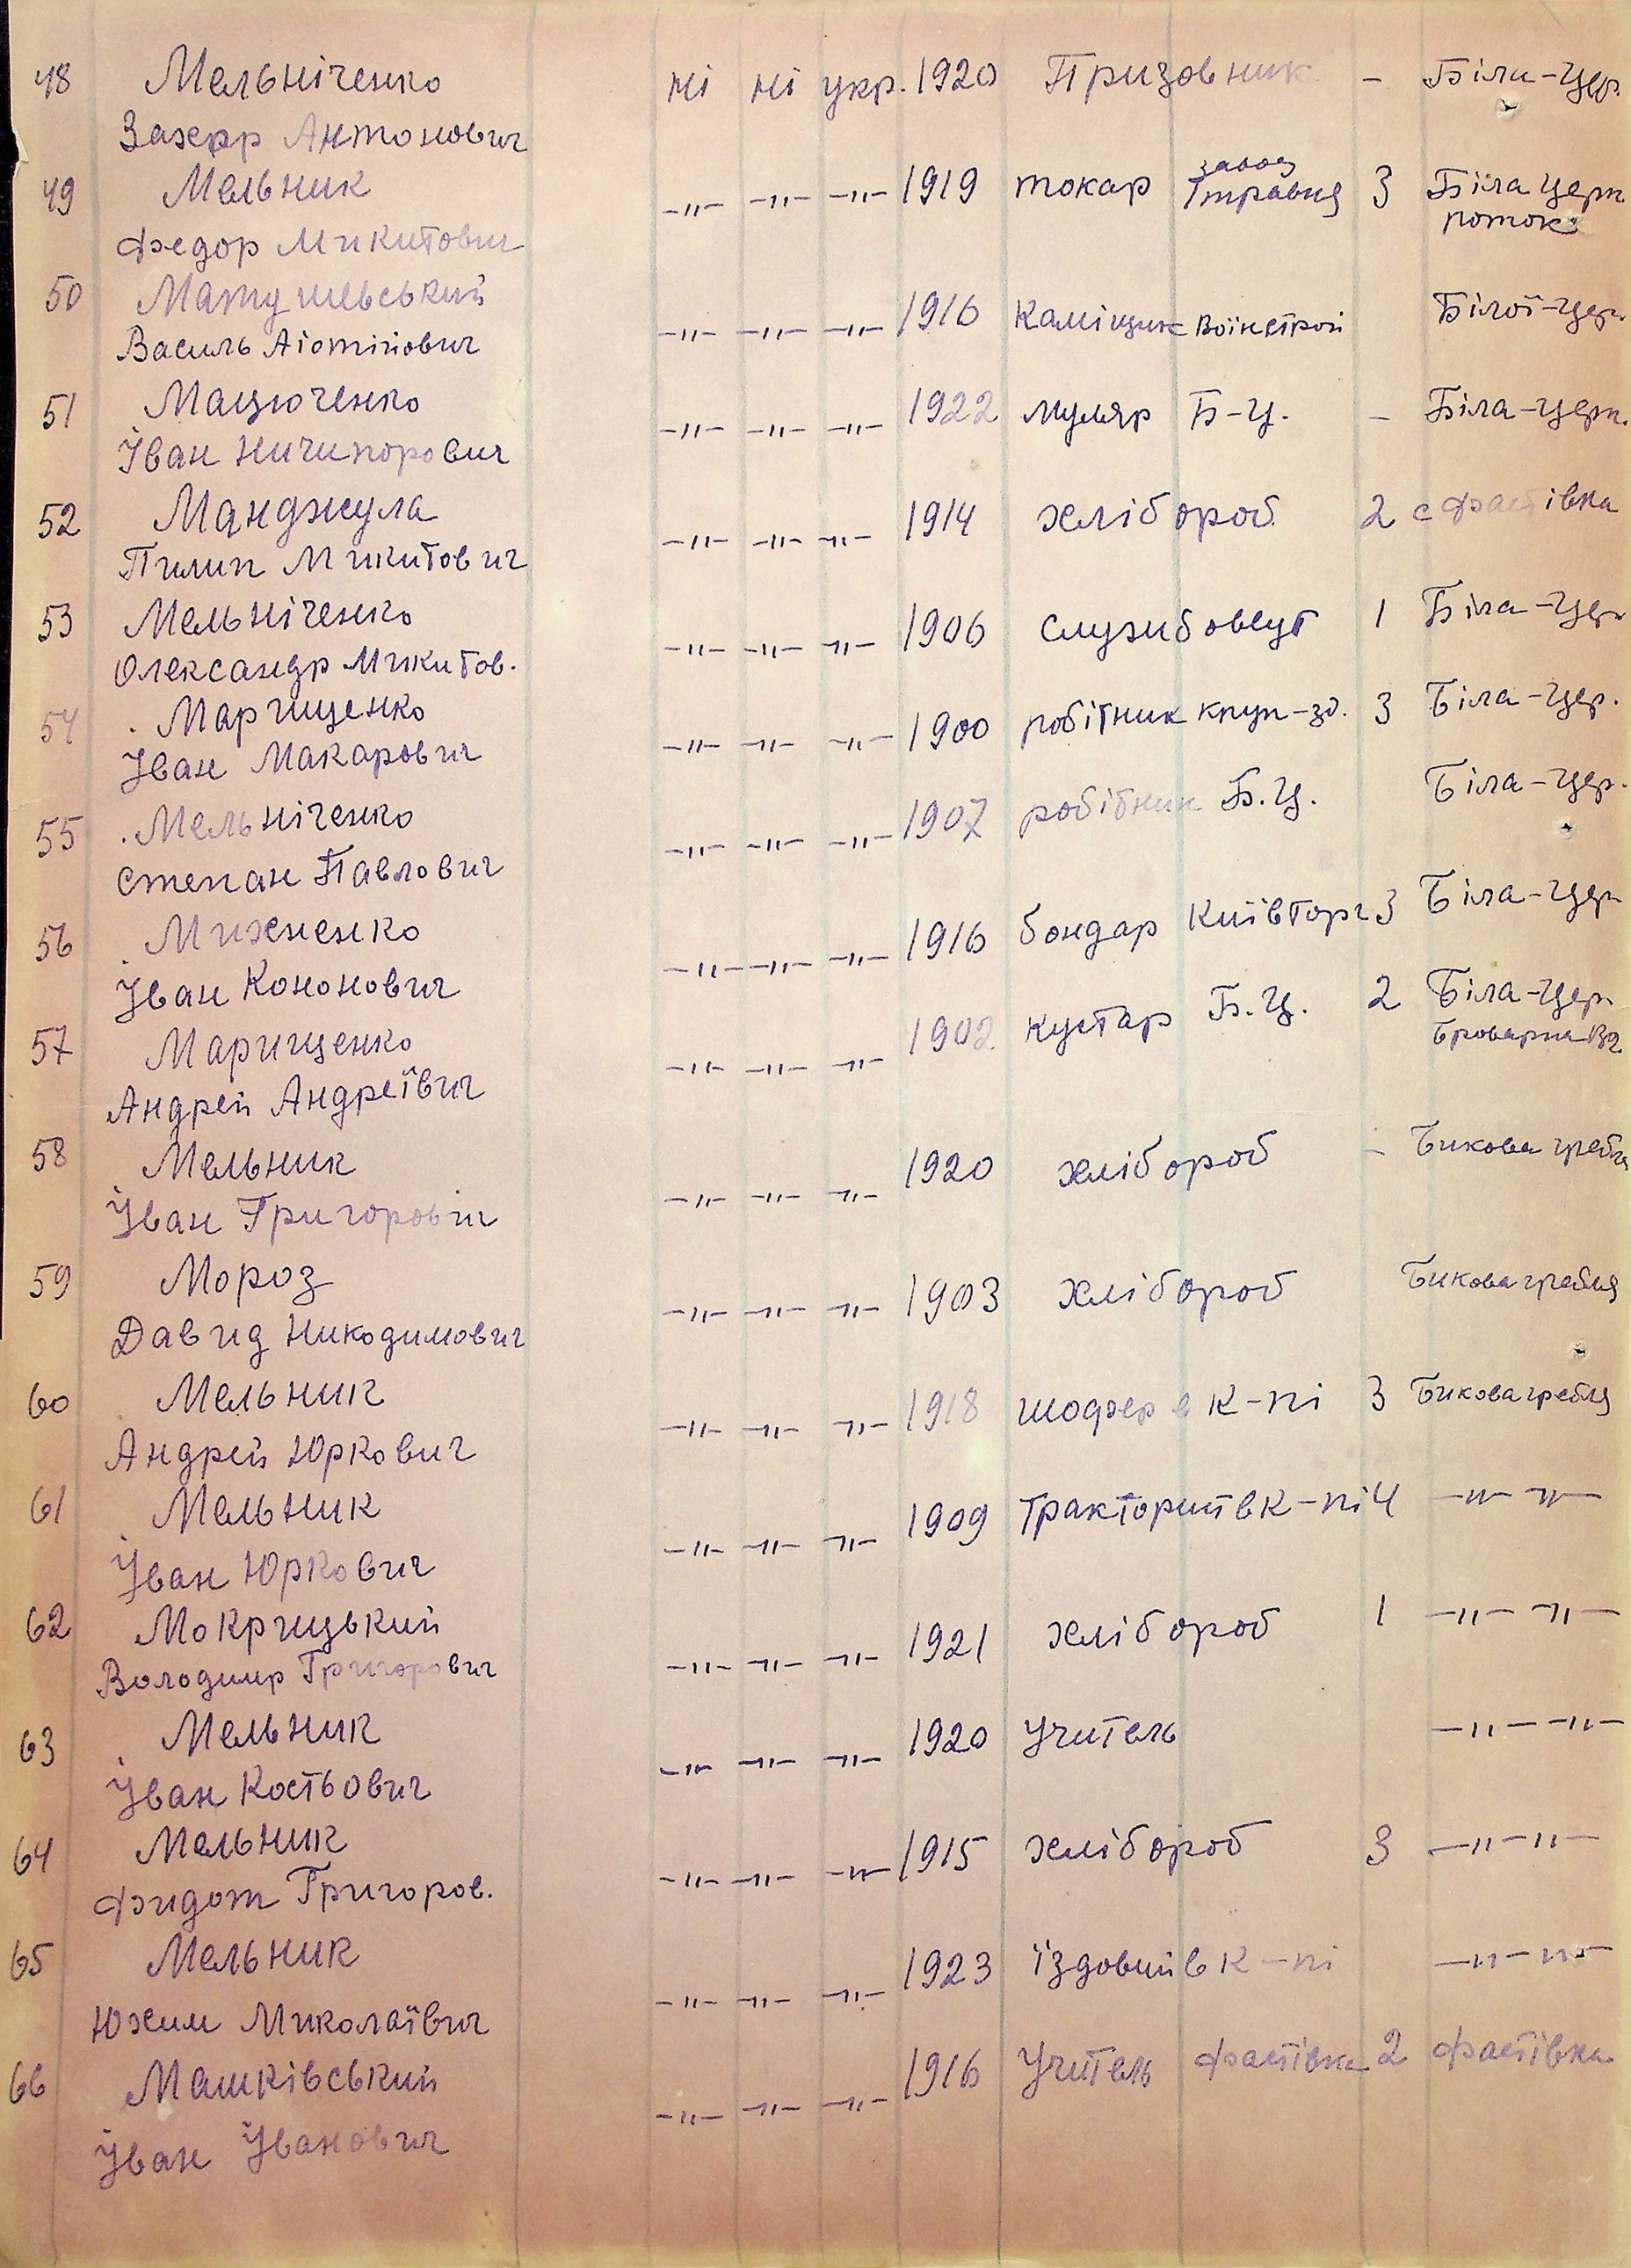 48 Мельніченко ні ні укр. 1920 Призовник - Біла-Цер.
Захарр Антонович
49 Мельник -"- -"- -"- 1919 токар завод 1 травня 3 Біла Церк
Федор Микитович поток
50 Матушевський
Василь -"- -"- -"- 1916 Каміщик Воінстрой Білої-Цер.
51 Мацюченко -"- -"- -"- 1922 муляр Б-Ц. - Біла-Церк.
Іван Ничипорович
52 Манджула -"- -"- -"- 1914 хлібороб 2 с Фастівка
Пилип Микитович
53 Мельніченко -"- -"- -"- 1906 1 Біла-Цер
Олександр Микитов.
54 Марищенко -"- -"- -"- 1900 робітник круп-зд. 3 Біла-Цер.
Іван Макарович
55 Мельніченко -"- -"- -"- 1907 робітник Б.Ц. Біла-Цер.
Степан Павлович
56 Михненко -"- -"- -"- 1916 бондар Київторг 3 Біла-Цер
Іван Кононович
57 Марищенко -"- -"- -"- 1902 кустар Б.Ц. 2 Біла-Цер
Андрей Андреївич Броварна
58 Мельник -"- -"- -"- 1920 хлібороб - Бикова гребля
Іван Григорович
59 Мороз -"- -"- -"- 1903 хлібороб Бикова гребля
Давид Никодимович
60 Мельник -"- -"- -"- 1918 шофер в к-пі 3 Бикова гребля
Андрей Юркович
61 Мельник -"- -"- -"- 1909 Тракторист в к-пі 4 -"- -"-
Іван Юркович
62 Мокрицький -"- -"- -"- 1921 хлібороб 1 -"- -"-
Володимр Григорович
63 Мельник -"- -"- -"- 1920 Учитель -"- -"-
Іван Костьович
64 Мельник -"- -"- -"- 1915 хлібороб 3 -"- -"-
Фидот Григоров.
65 Мельник -"- -"- -"- 1923 їздовий в к-пі -"- -"-
Юхим Миколаївич
66 Машківський -"- -"- -"- 1916 Учитель Фастівка 2 Фастівка
Іван Іванович